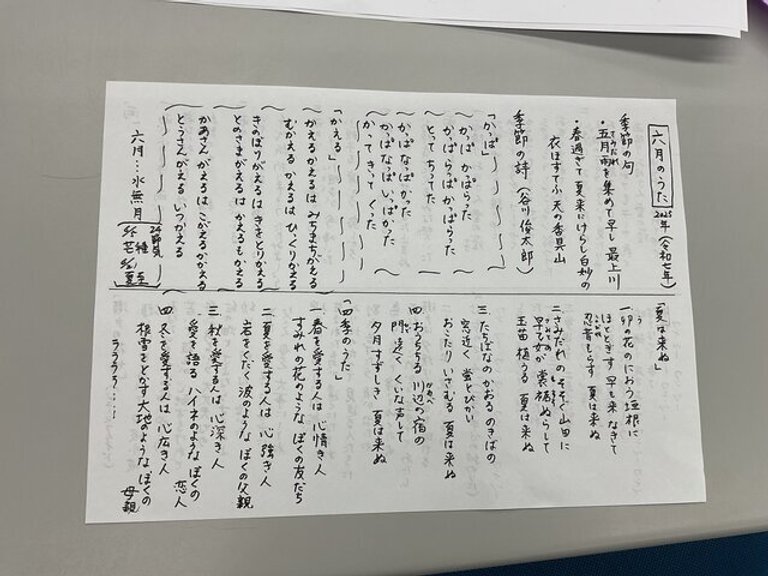 六月のうた 2025年(令和七年)
季節の句
・五月雨を集めて早し最上川
さみだれ
・春過ぎて夏来にけらし白妙の
衣ほすてふ天の香具山
季節の詩(谷川俊太郎)
「かっぱ」
かっぱかっぱらった
かっぱらっぱかっぱらった
とってちってた
かっぱなっぱかった
かっぱなっぱいっぱかった
かってきってくった
「かえる」
かえるかえるは みちまちがえる
むかえるかえるは ひっくりかえる
きのぼりがえるは きをとりかえる
とのさまがえるは かえるもかえる
かあさんがえるは こがえるかかえる
とうさんがえる いつかえる
六月…水無月
24節気
6/5 芒種
6/21 夏至
「夏は来ぬ」
一 卯の花のにおう垣根に
う
ほととぎす 早も来なきて
忍音もらす 夏は来ぬ
二 さみだれの そそぐ山田に
早乙女が 裳裾ぬらして
玉苗植うる 夏は来ぬ
三 たちばなの かおるのきばの
窓近く 蛍とびかい
おこたりいさむる 夏は来ぬ
四 おうちちる 川辺の宿の
かわべ
門遠く くいな声して
夕月すずしき 夏は来ぬ
「四季のうた」
一 春を愛する人は 心清き人
すみれの花のような ぼくの友だち
二 夏を愛する人は 心強き人
岩をくだく波のような ぼくの父親
三 秋を愛する人は 心深き人
愛を語る ハイネのような ぼくの恋人
四 冬を愛する人は 心広き人
根雪をとかす大地のような ぼくの母親
ラララ…